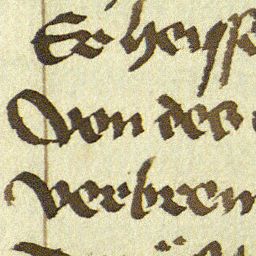 Er heysse
Von des
verbren